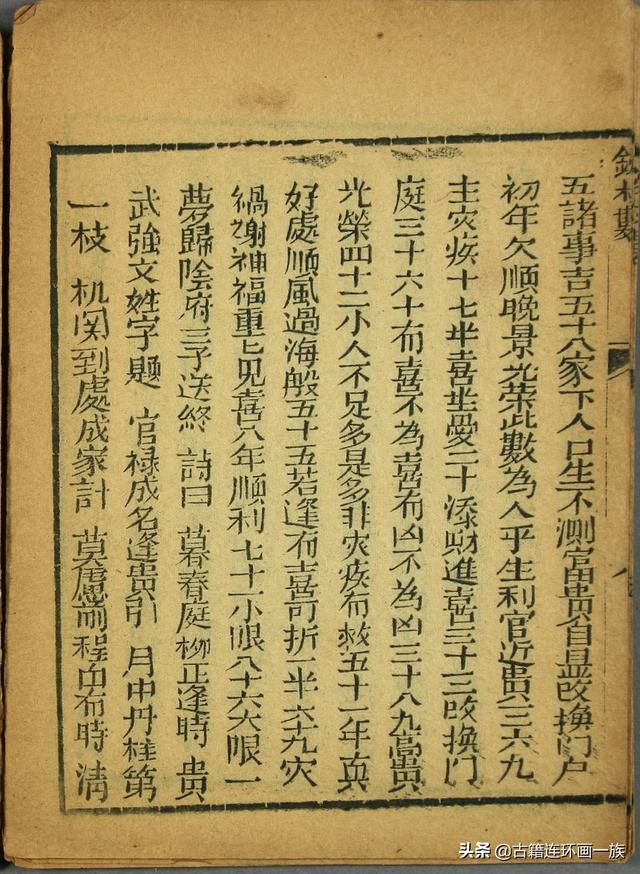 五諸事吉五十八家下人口生不測富貴自是改换门户
初年欠順晚景光荣此數為人乎生利官近貴三六九
主灾疾十七半喜坐憂二十添財進喜三十三改换门
庭三十六十有喜不為喜有凶不為凶三十八九高貴
光荣四十二小人不足多是多非灾疾有救五十一年真
好處順風過海般五十五若逢有喜可折一半六九灾
禍谢神福重七見喜八年順利七十一小限八十六大限一
夢歸陰府三子送終 詩曰 暮春庭柳正逢時 貴
武強文姓字題 官禄成名逢貴引 月中丹桂第
一枝 机関到處成家計 莫慮前程自有時 清
头条 @古籍连环画一族